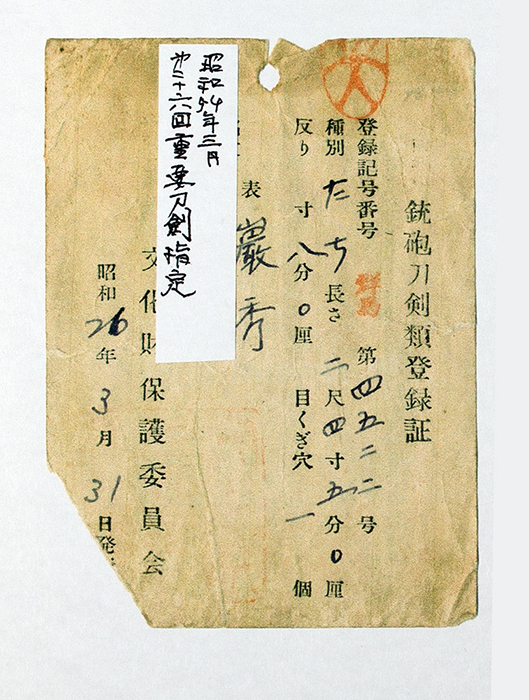 銃砲刀剣類登録証
登録記号番号 群馬 第四五二二号
種別 たち 長さ 二尺四寸五分0厘
反り 寸八分0厘 目くぎ穴 一個
表 巌秀
文化財保護委員会
昭和26年3月31日発
昭和54年三月
㐧二十六回重要刀剣指定